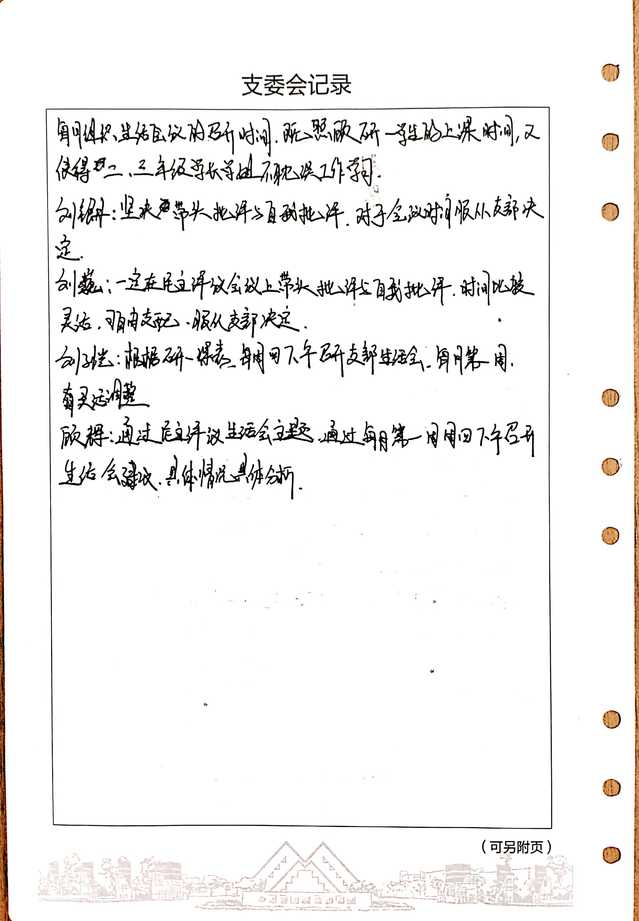 支委会记录
每月组织生活会议的召开时间.既照顾研一学生的上课时间,又
使得二、三年级学长学姐不耽误工作学习.
刘银丹:坚决带头批评与自我批评.对于会议时间服从支部决
定.
刘巍:一定在民主评议会议上带头批评与自我批评.时间比较
灵活,可自由支配.服从支部决定.
刘:根据研一课表,每周四下午召开支部生活会.每月第一周.
有灵活调整
:通过民主评议生活会主题,通过每月第一周周四下午召开
生活会建议.具体情况具体分析.
(可另附页)